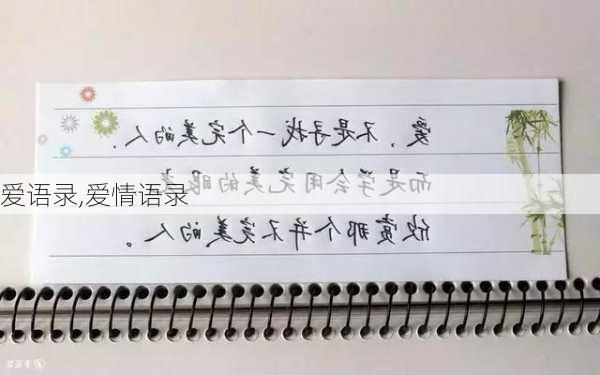 爱，不是寻找一个完美的人，
而是学会用完美的眼光
爱语录,爱情语录
欣赏那个并不完美的人。